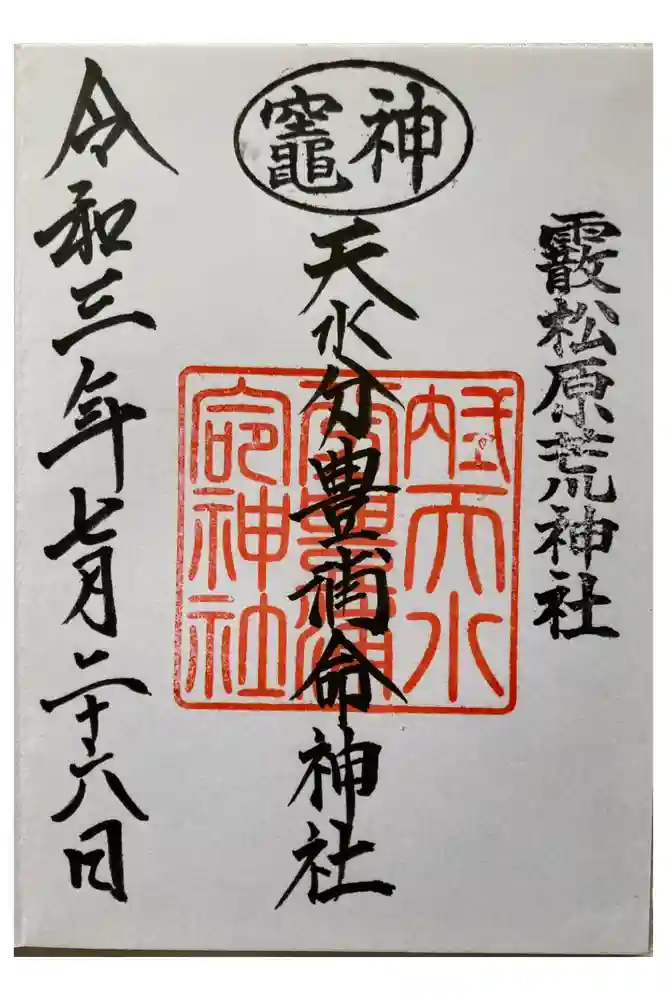 霰松原荒神社
神竈
天水分豊浦命神社
式内天水
分豊浦
命神社
令和三年七月二十六日